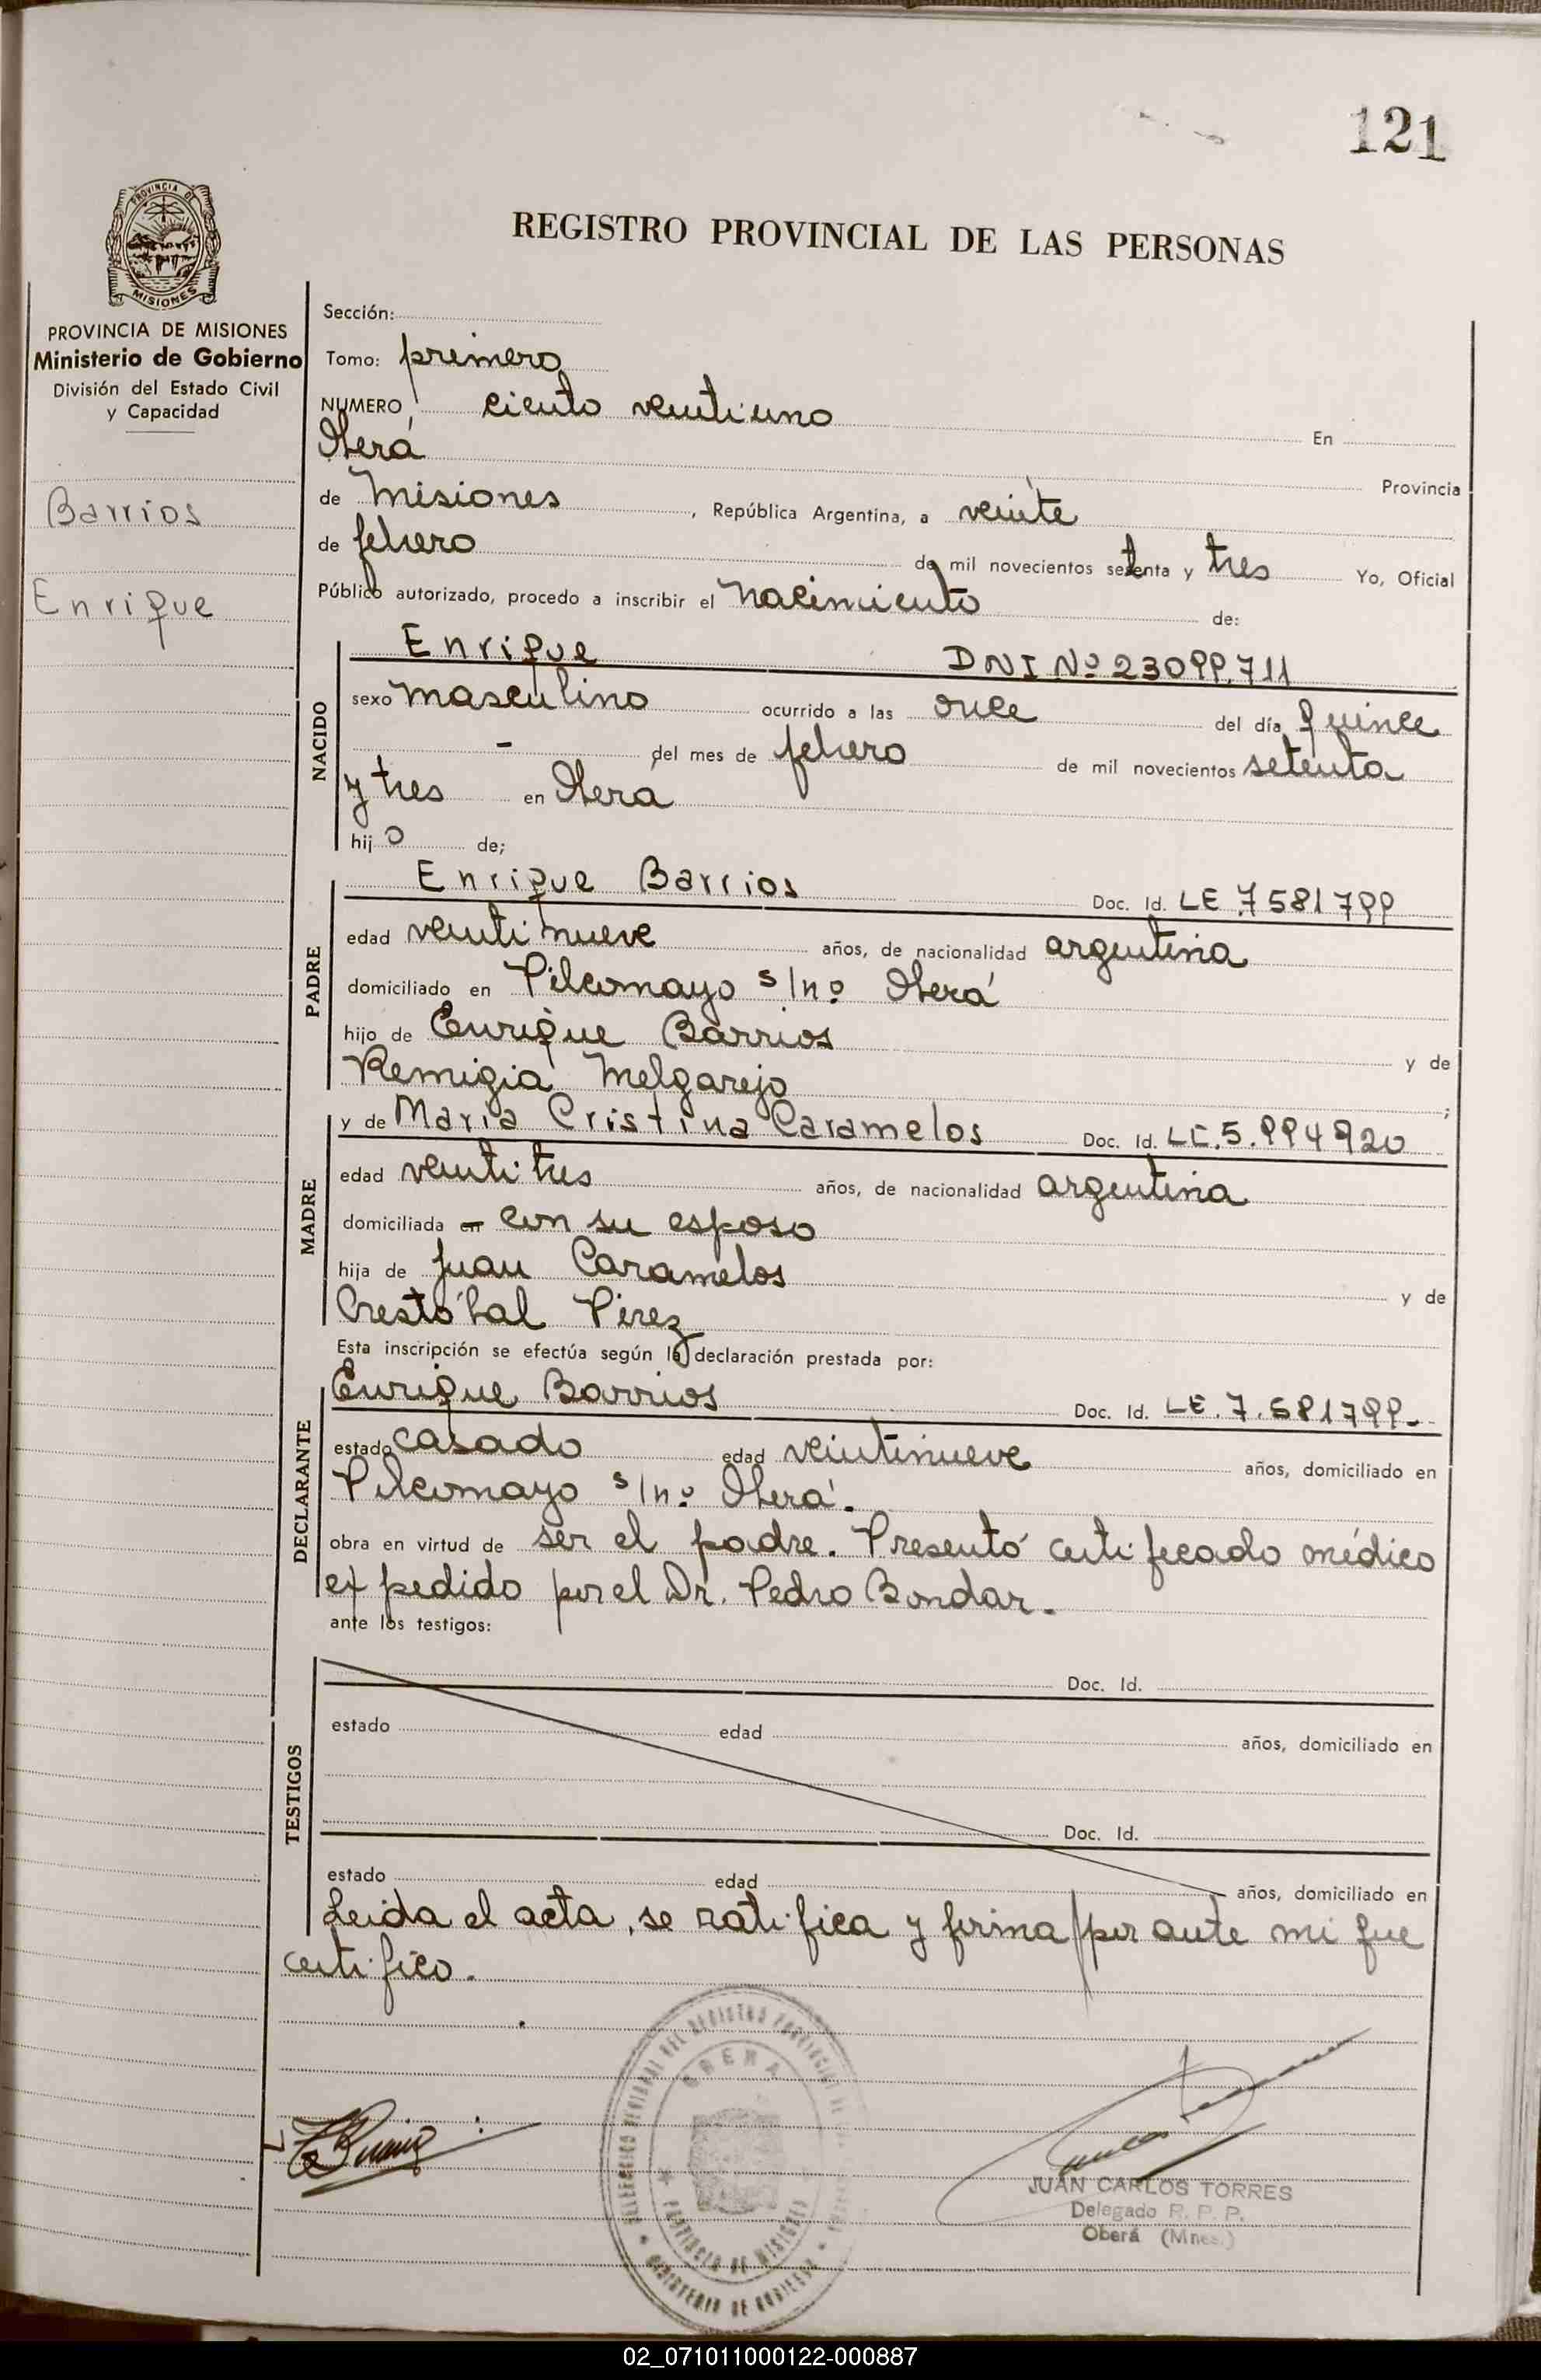 121
PROVINCIA DE MISIONES
REGISTRO PROVINCIAL DE LAS PERSONAS
PROVINCIA DE MISIONES
Ministerio de Gobierno
División del Estado Civil
y Capacidad
Barrios
Enrique
Sección:
Tomo: primero
NUMERO ciento veintiuno En
Oberá Provincia
de Misiones, República Argentina, a veinte
de febrero de mil novecientos setenta y tres Yo, Oficial
Público autorizado, procedo a inscribir el nacimiento de:
NACIDO
Enrique DNI Nº 23099.711
sexo masculino ocurrido a las once del día quince
- del mes de febrero de mil novecientos setenta
y tres en Obera
hijo de;
PADRE
Enrique Barrios Doc. Id. LE 7581799
edad veintinueve años, de nacionalidad argentina
domiciliado en Pilcomayo s/nº Oberá
hijo de Enrique Barrios y de
Remigia Melgarejo ;
MADRE
y de Maria Cristina Caramelos Doc. Id. LC.5.994920
edad veintitres años, de nacionalidad argentina
domiciliada en con su esposo
hija de Juan Caramelos y de
Crestóbal Pirez
Esta inscripción se efectúa según la declaración prestada por:
DECLARANTE
Enrique Barrios Doc. Id. LE.7.581799-
estado casado edad veintinueve años, domiciliado en
Pilcomayo s/nº Oberá.
obra en virtud de ser el padre. Presentó certificado médico
expedido por el Dr. Pedro Bondar.
ante los testigos:
TESTIGOS
Doc. Id.
estado edad años, domiciliado en
Doc. Id.
estado edad años, domiciliado en
Leida el acta, se ratifica y firma por ante mi que
certifico.
OBERA
PROVINCIA DE MISIONES
MINISTERIO DE GOBIERNO
JUAN CARLOS TORRES
Delegado R. P. P.
Oberá (Mnes.)
02_071011000122-000887